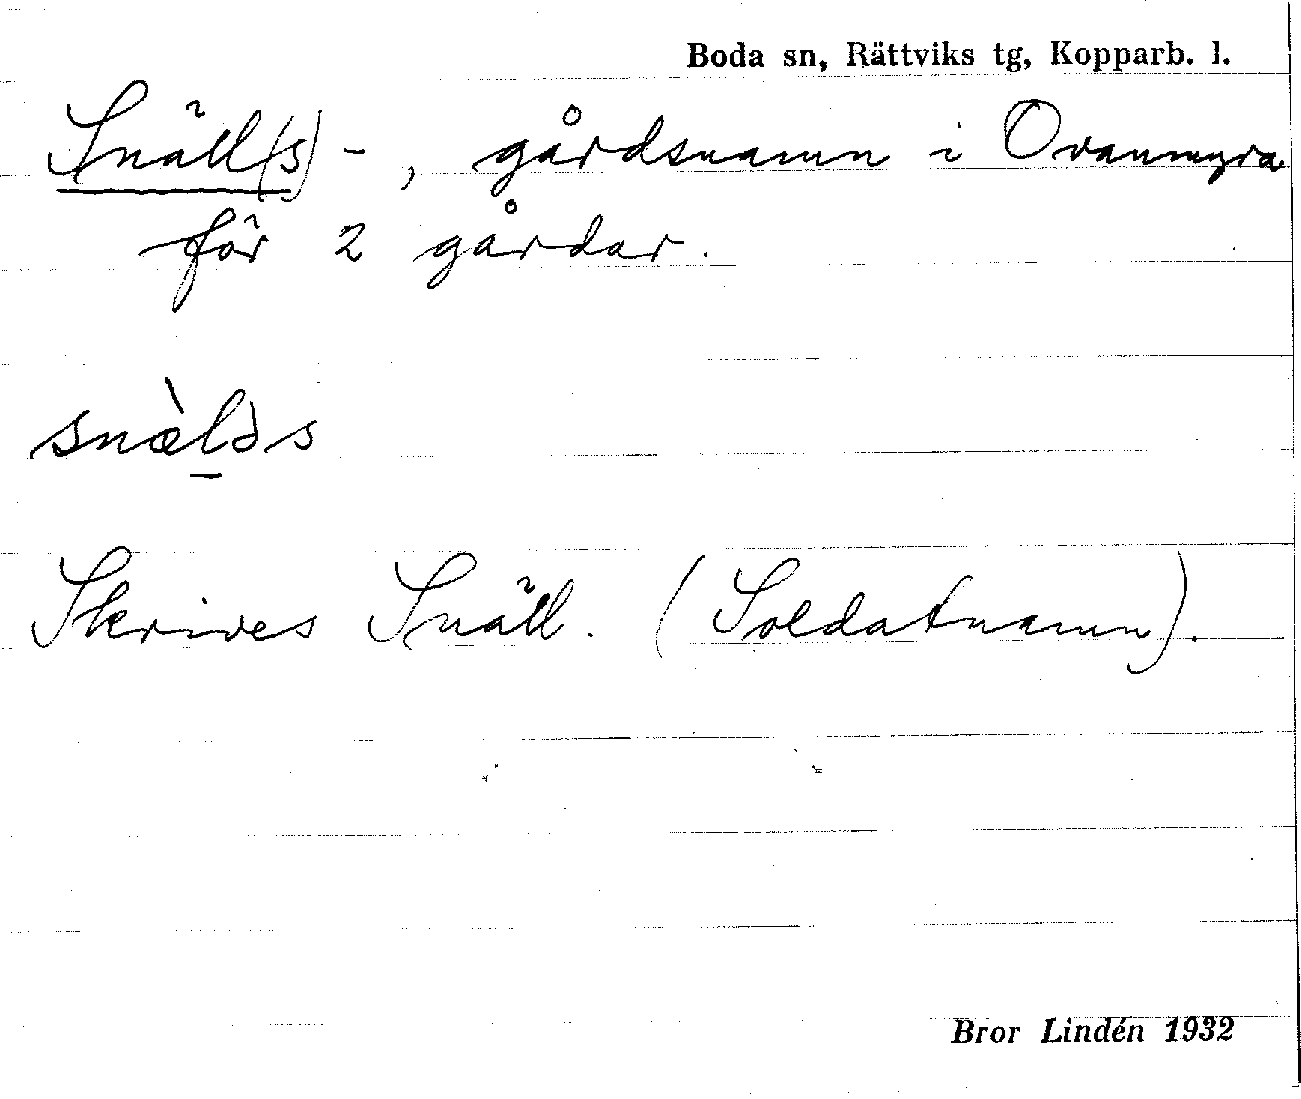 Boda sn, Rättviks tg, Kopparb. l.
Snäll(s)-, gårdsnamn i Ovanmyra
för 2 gårdar.
snæ̀l̠əs
Skrives Snäll. (Soldatnamn).
Bror Lindén 1932